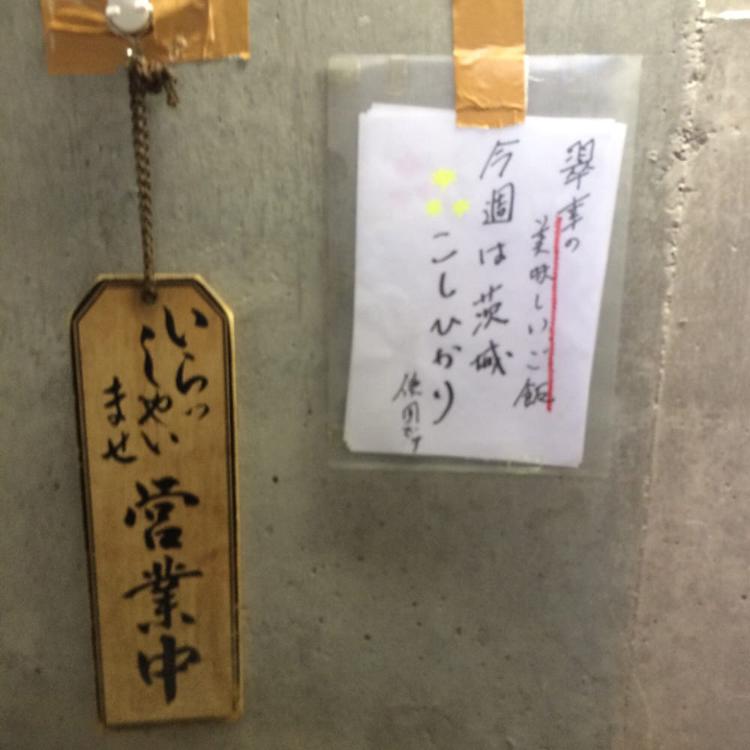 いらっ
しゃい
ませ
営業中
翠車の
美味しいご飯
今週は茨城
こしひかり
使用です